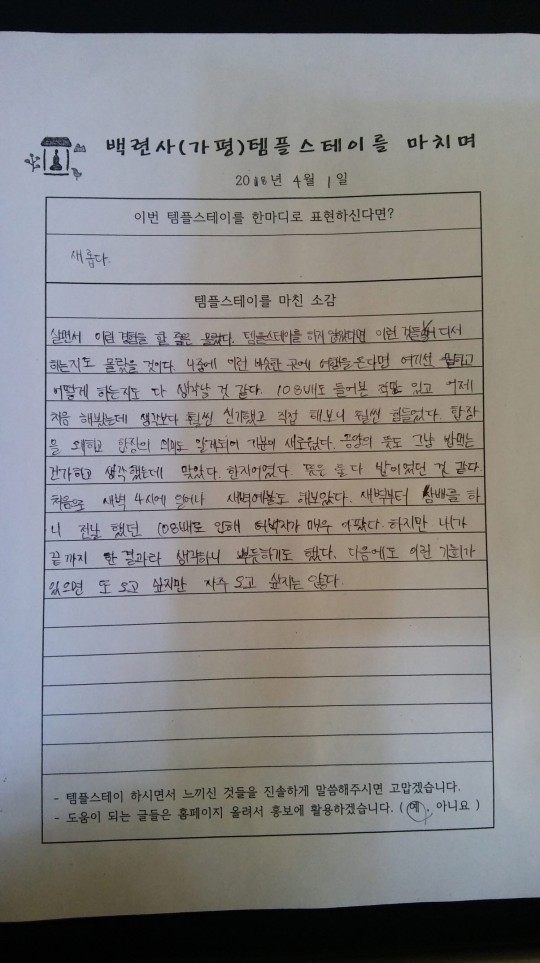 백련사(가평)템플스테이를 마치며
2018년 4월 1일
이번 템플스테이를 한마디로 표현하신다면?
새롭다.
템플스테이를 마친 소감
살면서 이런 경험을 할 줄은 몰랐다. 템플스테이를 하지 않았다면 이런 것들이 어디서
하는지도 몰랐을 것이다. 나중에 이런 비슷한 곳에 여행을 온다면 여기선 하고
어떻게 하는지도 다 생각날 것 같다. 108배도 들어본 적만 있고 어제
처음 해봤는데 생각보다 훨씬 신기했고 직접 해보니 훨씬 힘들었다. 합장
을 왜하고 합장의 의미도 알게되어 기분이 새로웠다. 공양의 뜻도 그냥 밥먹는
건가하고 생각했는데 맞았다. 한자어였다. 뜻은 둘 다 밥이었던 것 같다
처음으로 새벽 4시에 일어나 새벽예불도 해보았다. 새벽부터 삼배를 하
니 전날 했던 108배로 인해 허벅지가 매우 아팠다. 하지만 내가
끝까지 한 결과라 생각하니 뿌듯하기도 했다. 다음에도 이런 기회가
있으면 또 오고 싶지만 자주 오고 싶지는 않다.
- 템플스테이 하시면서 느끼신 것들을 진솔하게 말씀해주시면 고맙겠습니다.
- 도움이 되는 글들은 홈페이지 올려서 홍보에 활용하겠습니다. ( 예 , 아니요 )